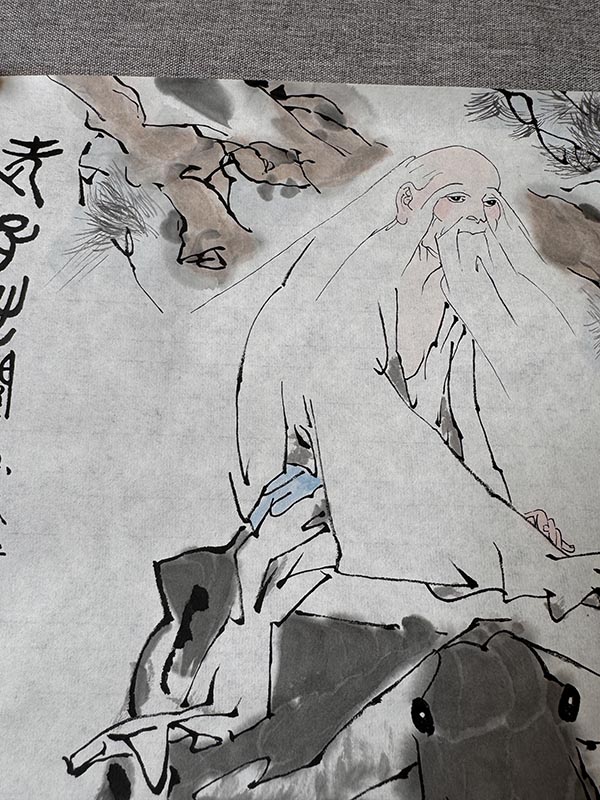 老子出關